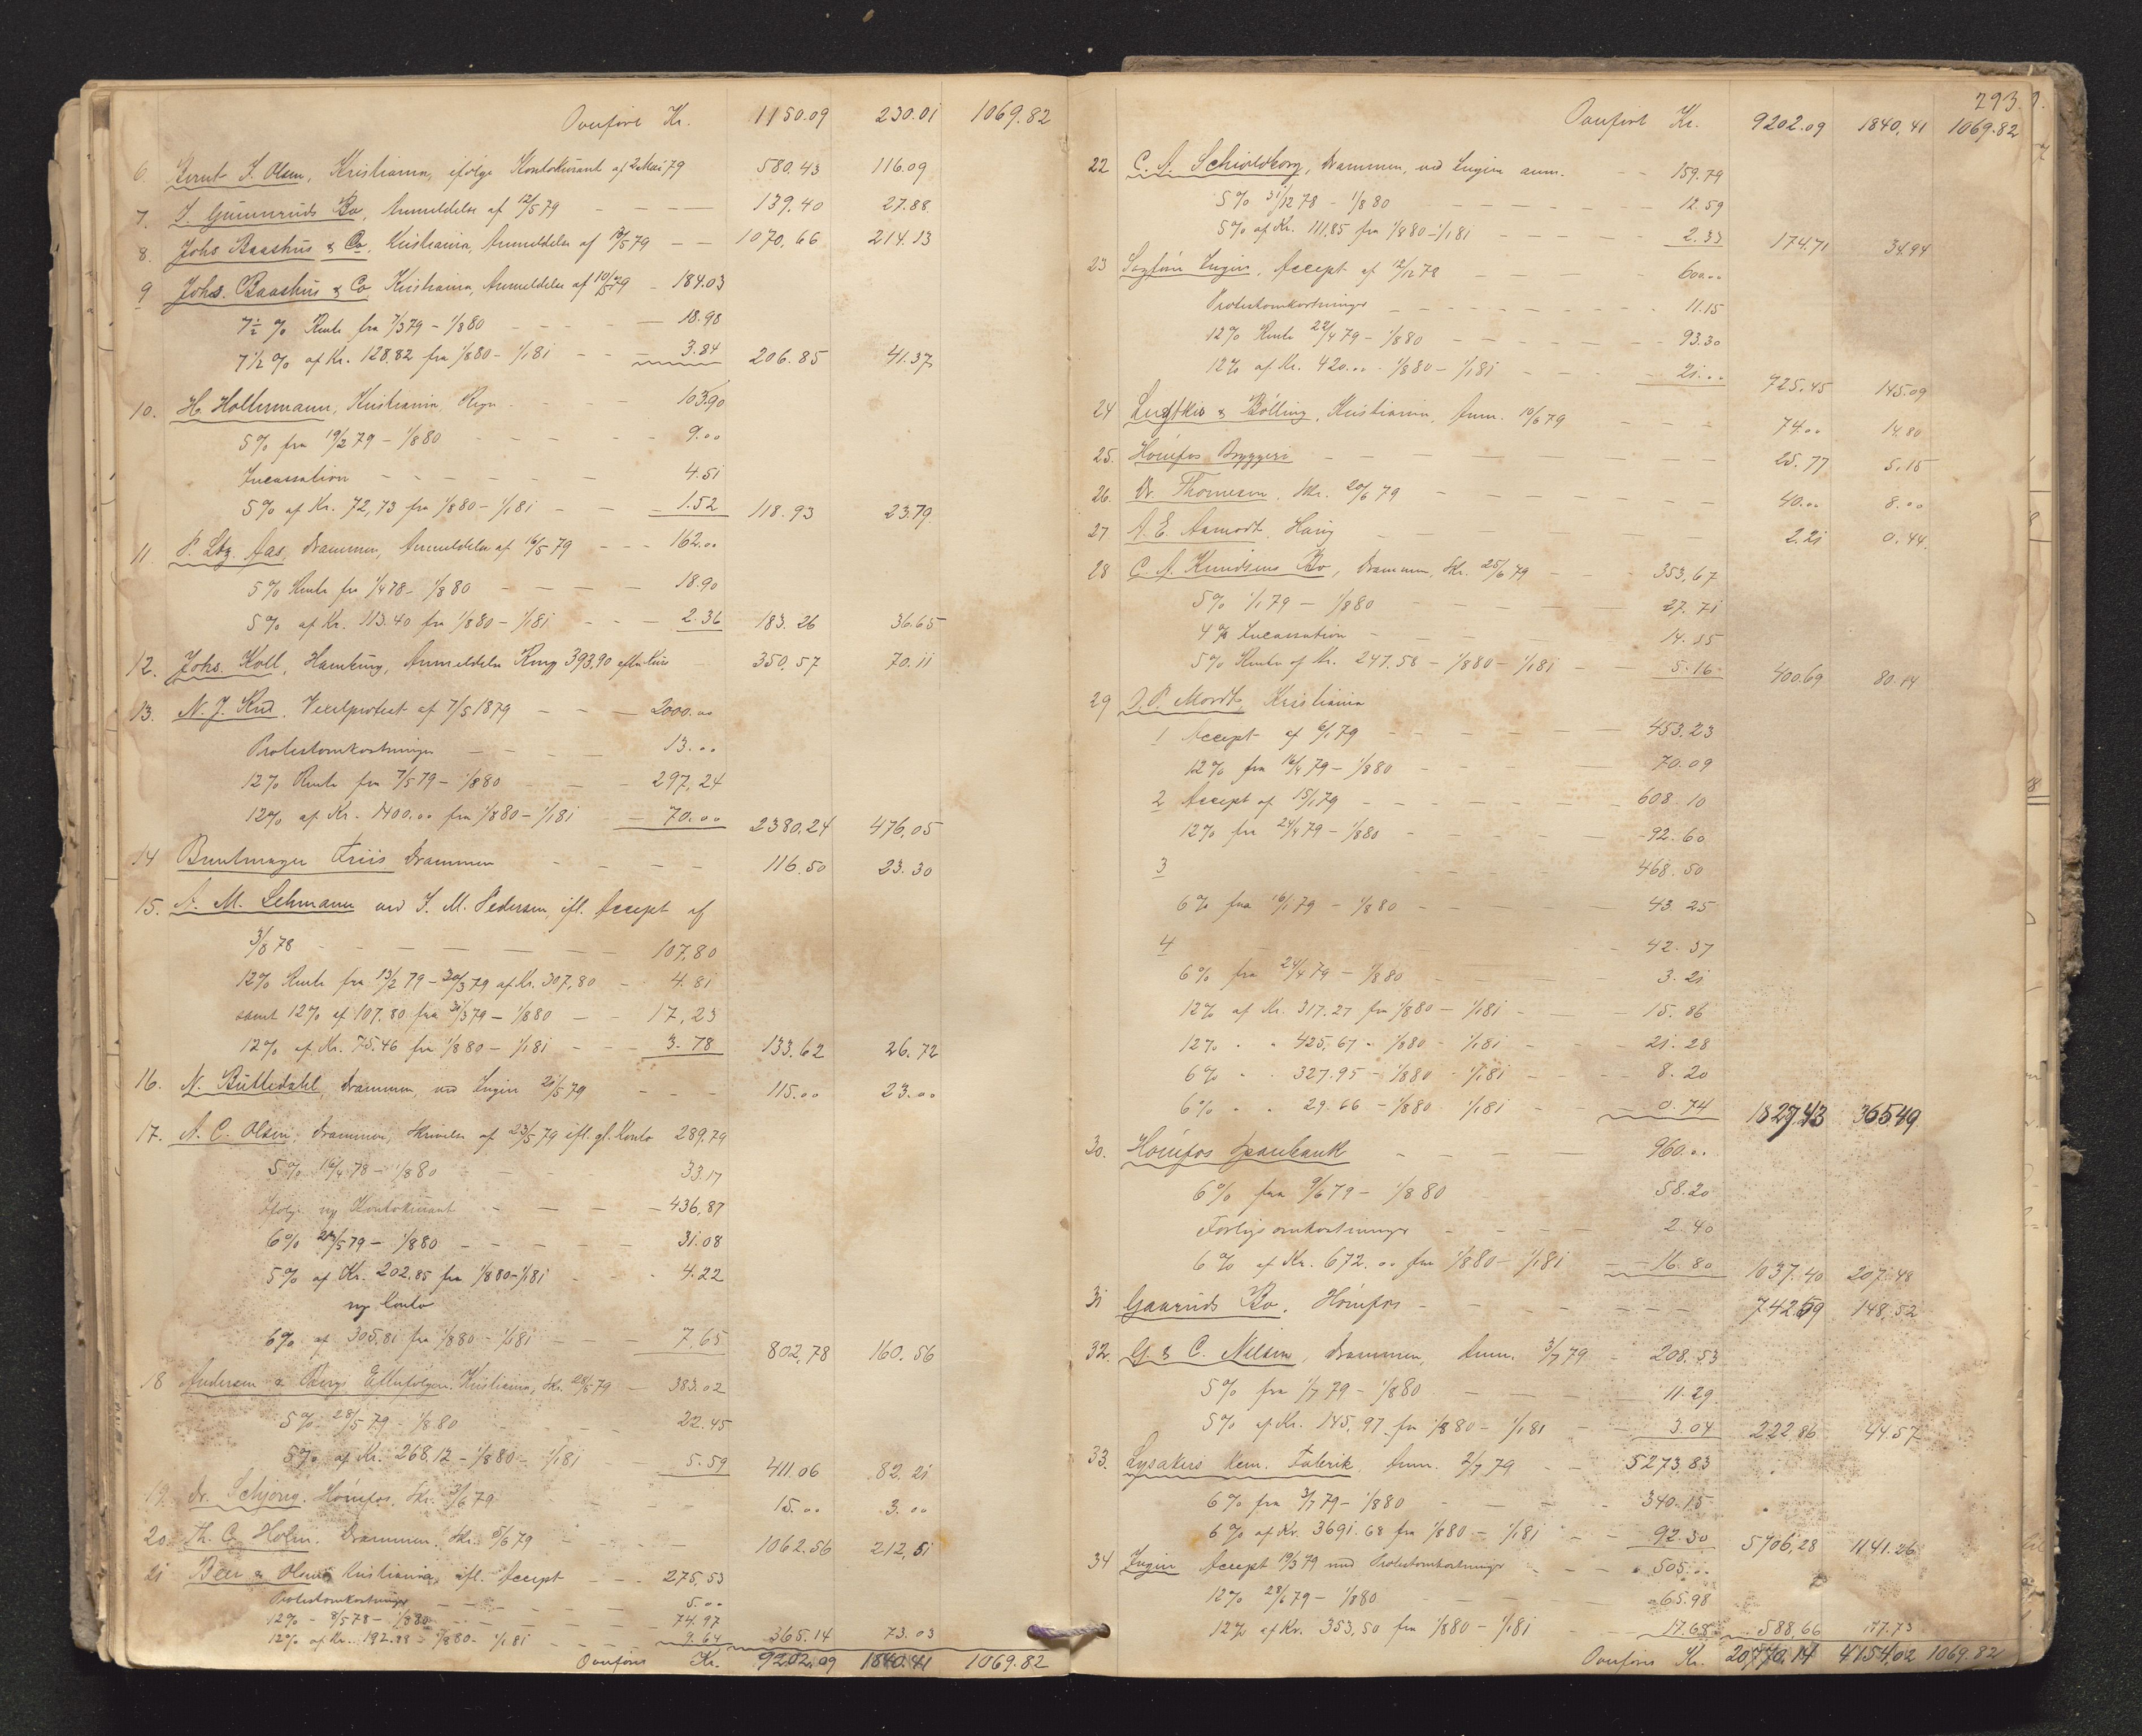 Overført Kr. 1150.09 230.01 1069.82
6. Bernt J. Olsen, Kristiania, ifølge Kontokurant af 2 Mai 79 580.43 116.09
7. J. Gunneruds Bo, Anmeldelse af 12/5 79 139.40 27.88
8. Johs Baashus & Co. Kristiania, Anmeldelse af 10/5 79 1070.66 214.13
9 Johs. Baashus & Co. Kristiania, Anmeldelse af 10/5 79 184.03
7½ % Rente fra 1/3 79 - 1/8 80 18.98
7½ % af Kr. 128.82 fra 1/8 80 - 1/1 81 3.84 206.85 41.37
10. H. Holtermann, Kristiania, Regn 103.90
5% fra 19/2 79 - 1/8 80 9.00
Incassation 4.51
5% af Kr. 72,73 fra 1/8 80 - 1/1 81 1.52 118.93 23.79
11 P. Ltz. Aas, Drammen, Anmeldelse af 16/5 79 162.00
5% Rente fra 1/4 78 - 1/8 80 18.90
5% af Kr. 113.40 fra 1/8 80 - 1/1 81 2.36 183.26 36.65
12. Johs. Koll, Hamburg, Anmeldelse Rmp 393.90 efter Kurs 350,57 70.11
13. N. J. Rud. Vexelprotest af 7/5 1879 2000.00
Protestomkostninger 13.00
12% Rente fra 7/5 79 - 1/8 80 297,24
12% af Kr. 1400.00 fra 1/8 80 - 1/1 81 70.00 2380,24 476,05
14 Buntmager Friis Drammen 116.50 23.30
15. A. M. Lehmann ved J. M. Pedersen, ifl. Accept af
3/8 78 107,80
12% Rente fra 13/2 79 - 30/3 79 af Kr. 307,80 4.81
samt 12% af 107.80 fra 31/3 79 - 1/8 80 17,23
12% af Kr. 75.46 fra 1/8 80 - 1/1 81 3.78 133.62 26.72
16. N. Buttedahl, Drammen, ved Engin 21/5 79 115.00 23.00
17. A. C. Olsen, Drammen, Skrivelse af 23/5 79 ifl. gl. Konto 289.79
5% 16/4 78 - 1/8 80 33.17
Ifølge ny Kontokurant 436,87
6% 23/5 79 - 1/8 80 31.08
5% af Kr. 202.85 fra 1/8 80 - 1/1 81 4.22
ny Conto
6% af 305.81 fra 1/8 80 - 1/1 81 7,65 802,78 160.56
18 Andersen & Bergs Efterfølger. Kristiania, Skr. 28/5 79 383.02
5% 28/5 79 - 1/8 80 22.45
5% af Kr. 268.12 - 1/8 80 - 1/1 81 5.59 411.06 82.21
19. Dr. Schjøng. Hønefos, Skr. 3/6 79 15.00 3.00
20. Th. C. Holm. Drammen. Skr. 5/6 79 1062.56 212,51
21 Beer & Olsen Kristiania, ifl. Accept 275,53
Protestomkostninger 5.00
12% - 8/5 78 - 1/8 80 74,97
12% af Kr. 192.88 - 1/8 80 - 1/1 81 9.64 365.14 73.03
Overføres Kr. 9202.09 1840.41 1069.82
293.
Overført Kr. 9202.09 1840,41 1069.82
22 C. A. Schioldborg, Drammen, ved Engin anm. 159.79
5% 31/12 78 - 1/8 80 12.59
5% af Kr. 111.85 fra 1/8 80 - 1/1 81 2.33 174.71 34.94
23 Engin, Accept af 12/12 78 600.00
Protestomkostninger 11.15
12% Rente 22/4 79 - 1/8 80 93.30
12% af Kr. 420.00 - 1/8 80 - 1/1 81 21.00 725.45 145.09
24 & Bölling, Kristiania, Anm. 10/6 79 74.00 14.80
25. Hönefos Bryggeri 25.77 5.15
26. Dr. Thomesen, Skr. 20/6 79 40.00 8.00
27 A. E. Aamodt, Haug 2.21 0.44
28 C. A. Knudsens Bo, Drammen, Skr. 25/6 79 353,67
5% 1/1 79 - 1/8 80 27.71
4% Incassation 14.15
5% Rente af Kr. 247.58 - 1/8 80 - 1/1 81 5.16 400.69 80.14
29 O. P. Mordt, Kristiania
1 Accept af 6/1 79 453.23
12% fra 16/4 79 - 1/8 80 70.09
2 Accept af 15/1 79 608.10
12% fra 24/4 79 - 1/8 80 92.60
3 468.50
6% fra 16/1 79 - 1/8 80 43.25
4 42.37
6% fra 24/4 79 - 1/8 80 3.21
12% af Kr. 317.27 fra 1/8 80 - 1/1 81 15.86
12% " " 425,67 - 1/8 80 - 1/1 81 21.28
6% " " 327.95 - 1/8 80 - 1/1 81 8.20
6% " " 29.66 - 1/8 80 1/1 81 0.74 1827.43 365.49
30. Hönefos Sparebank 960.00
6% fra 9/6 79 - 1/8 80 58.20
Forligsomkostninger 2.40
6% af Kr. 672.00 fra 1/8 80 - 1/1 81 16.80 1037.40 207.48
31 Gaaruds Bo. Hönefos 742.59 148,52
32. G. & C. Nilsen, Drammen, Anm. 3/7 79 208.53
5% fra 1/7 79 - 1/8 80 11.29
5% af Kr. 145,97 fra 1/8 80 - 1/1 81 3.04 222.86 44.57
33. Lysakers Kem. Fabrik, Anm. 2/7 79 5273.83
6% fra 3/7 79 - 1/8 80 340.15
6% af Kr. 3691.68 fra 1/8 80 - 1/1 81 92.30 5706,28 1141.26
34 Engin Accept 19/3 79 med Protestomkostninger 505.00
12% 28/6 79 - 1/8 80 65.98
12% af Kr. 353,50 fra 1/8 80 - 1/1 81 17.68 588,66 177.73
Overføres Kr. 20770.14 4154,02 1069.82